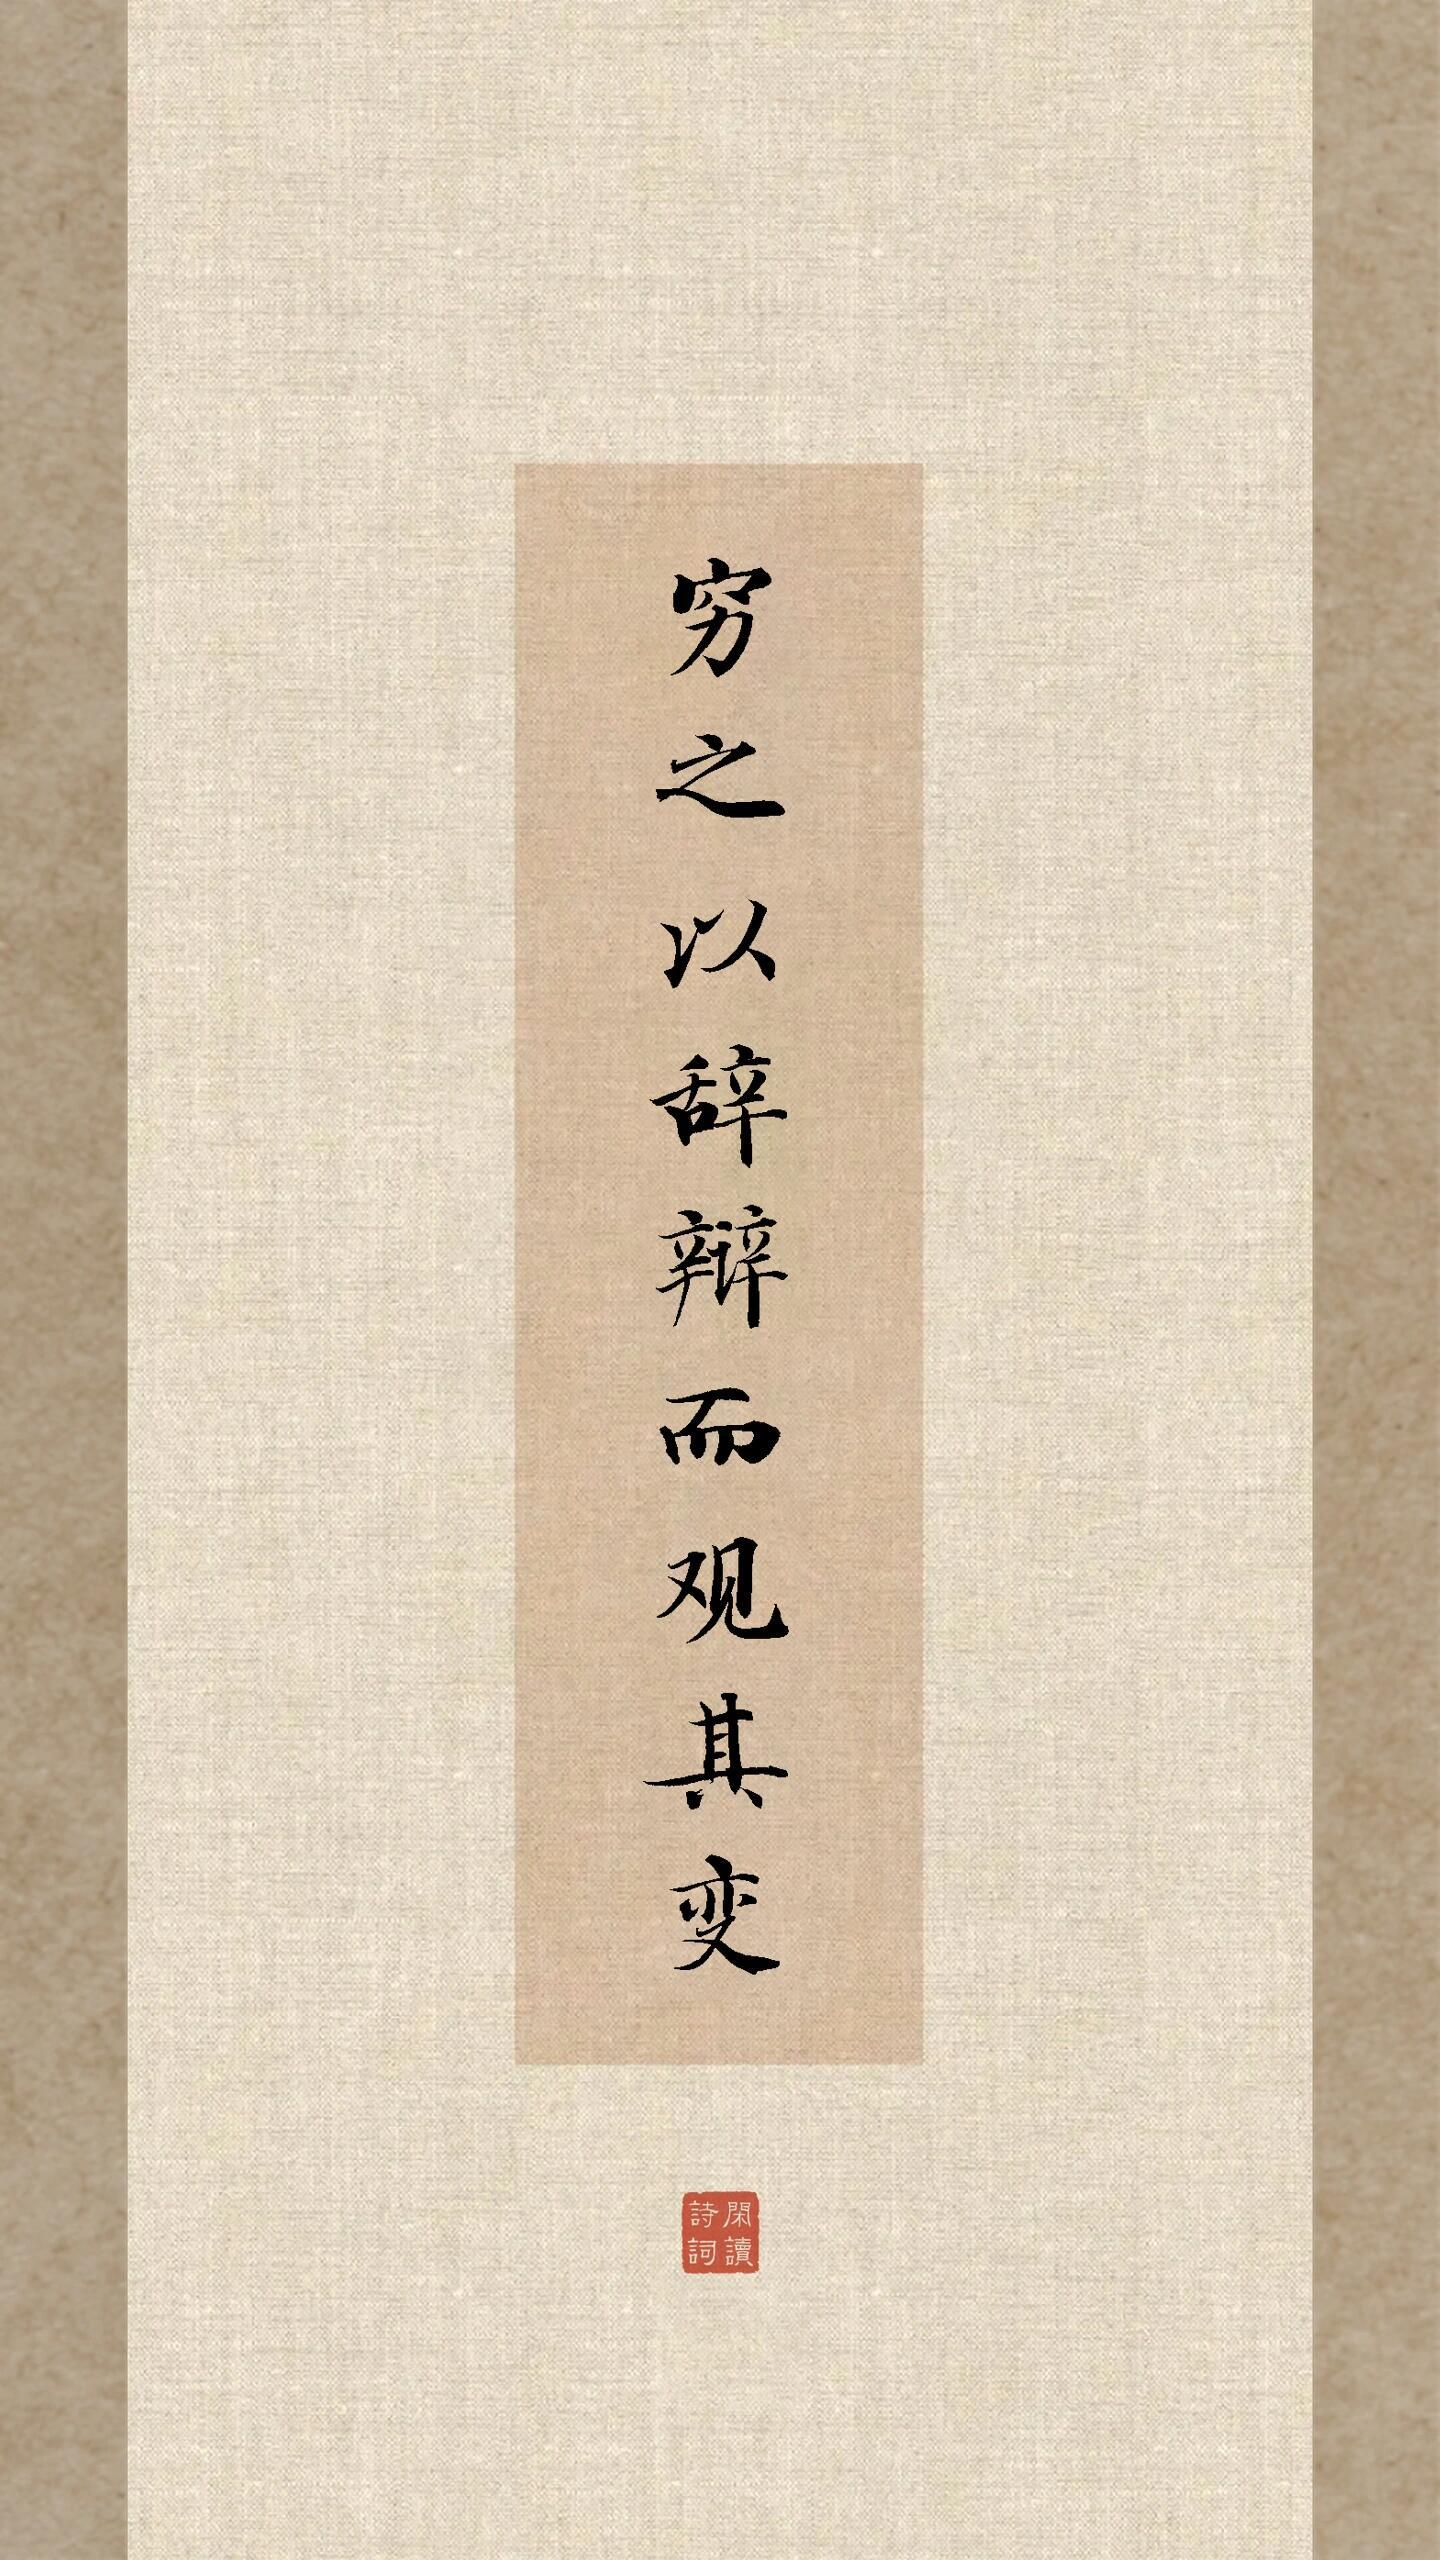 穷之以辞辩而观其变
閑讀
詩詞